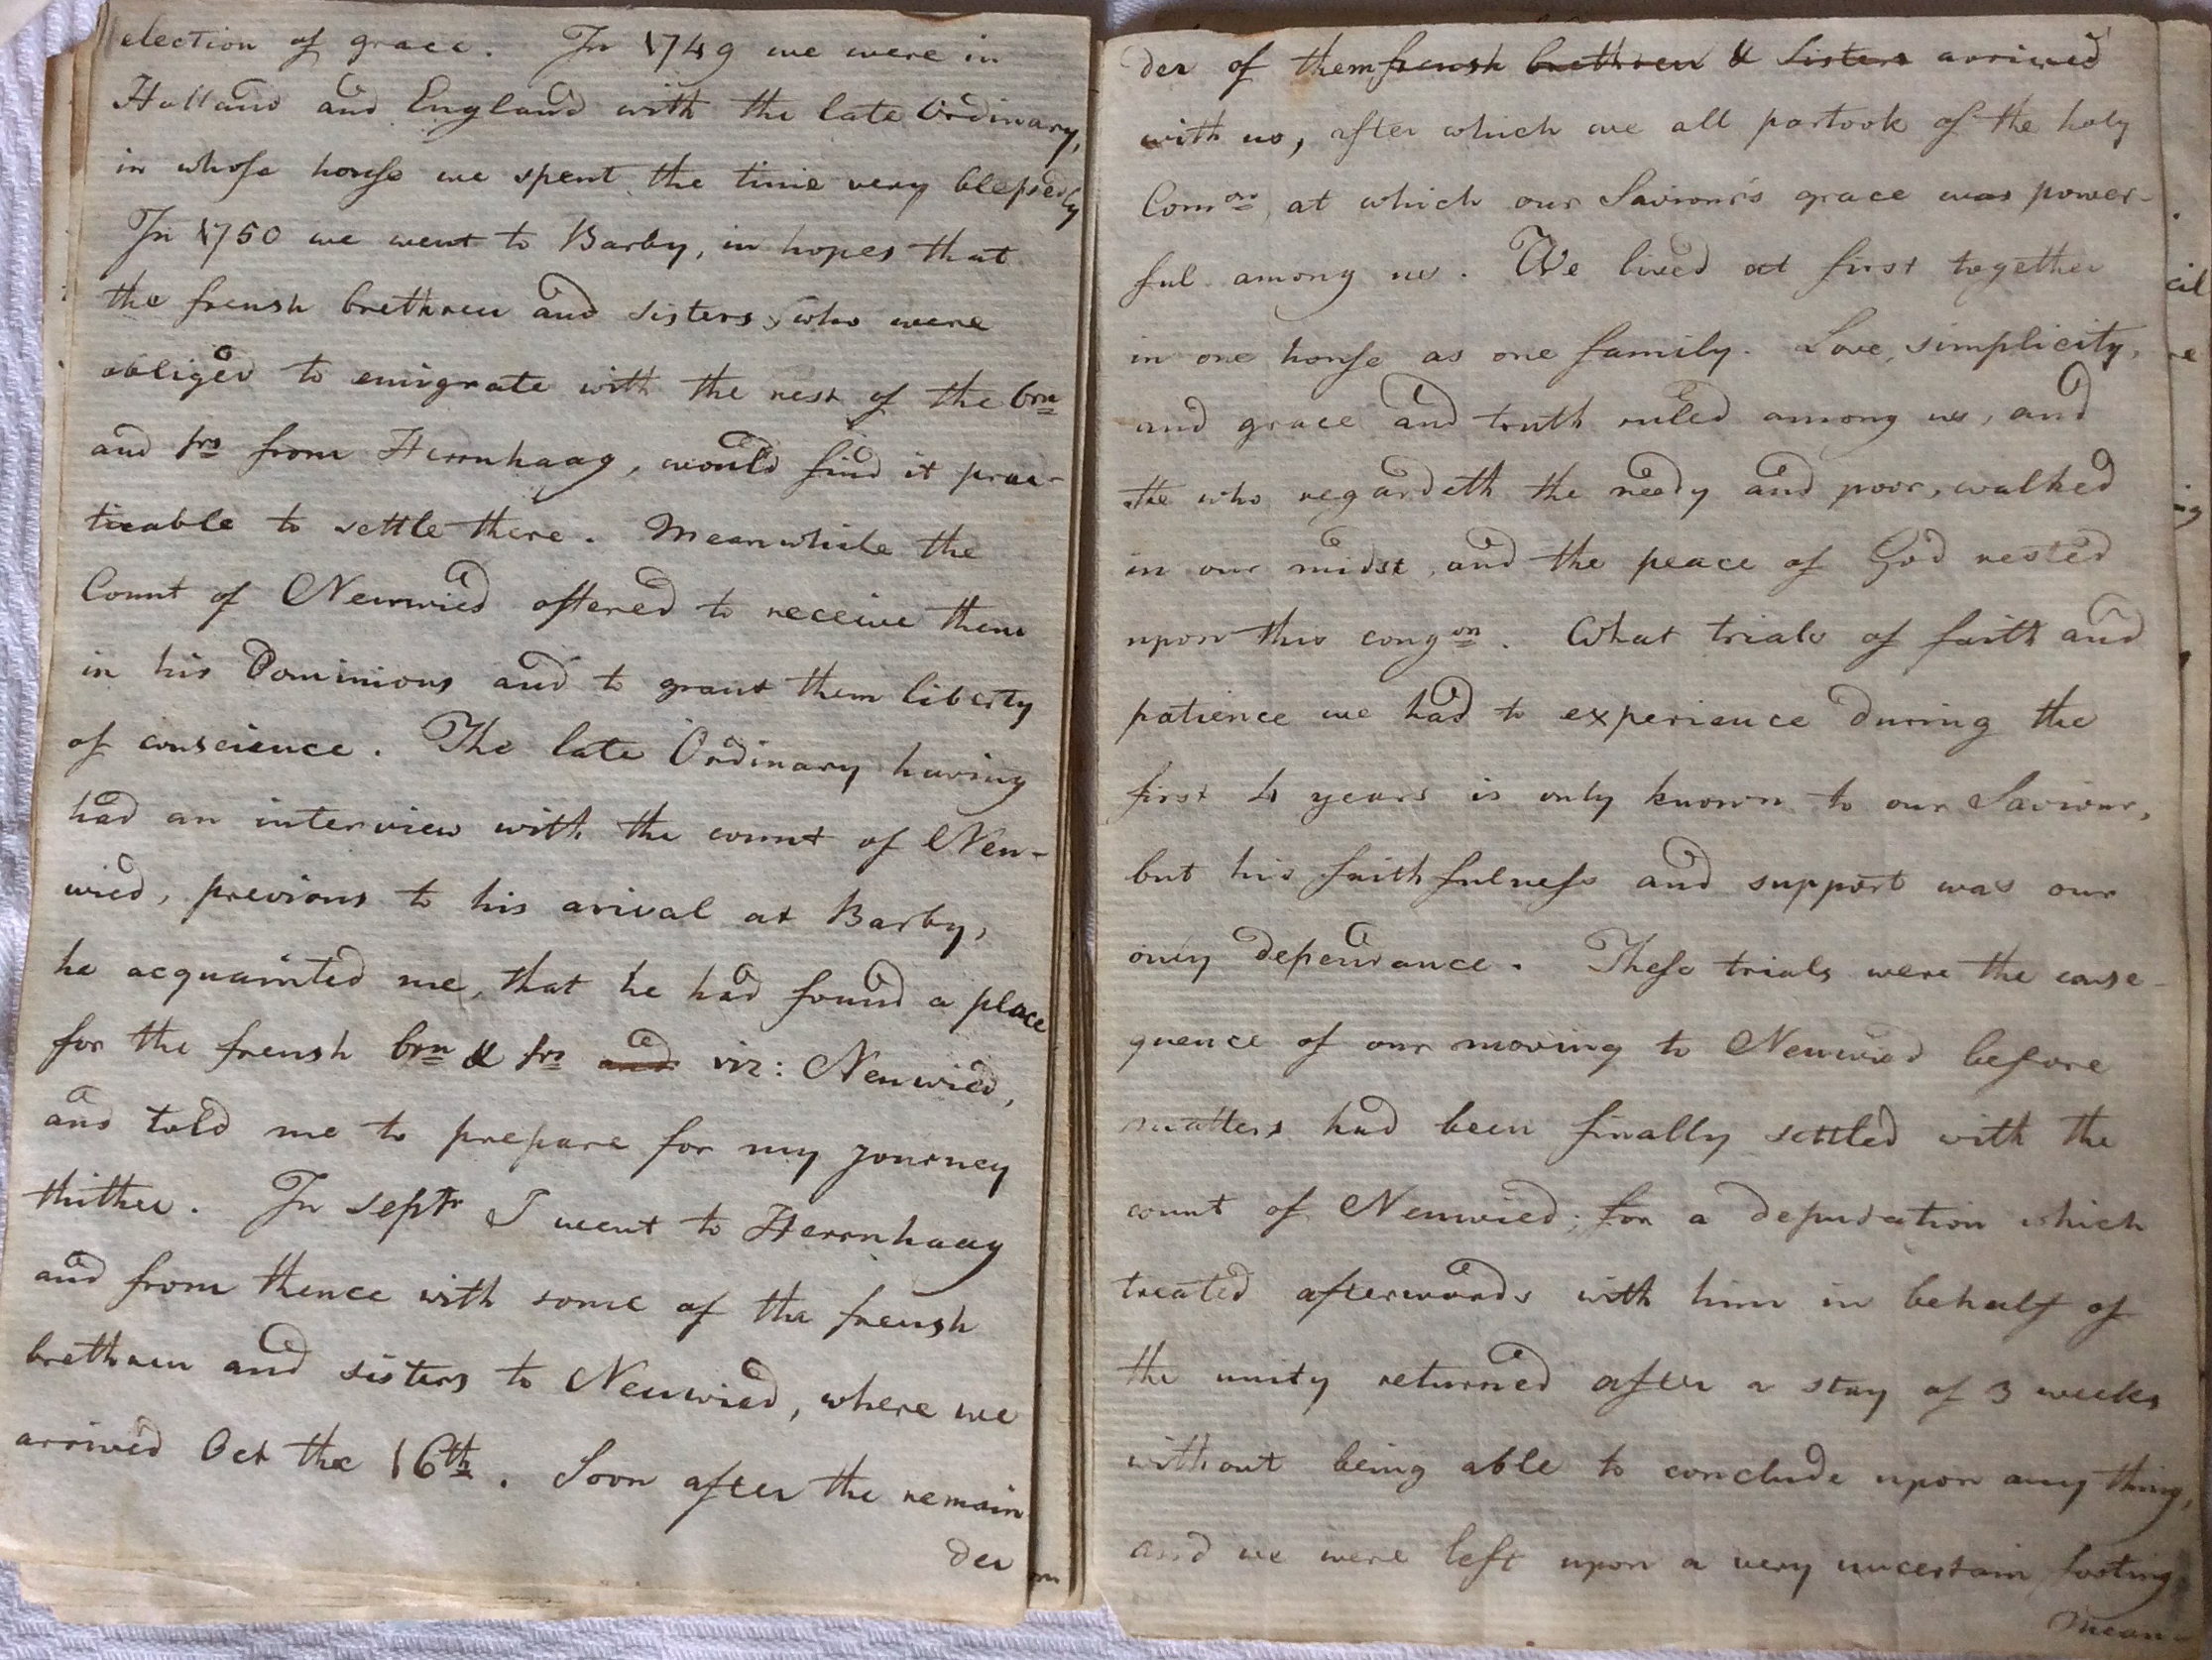 election of grace. In 1749 we were in
Holland and England with the late Ordinary,
in whose house we spent the time very blessedly
In 1750 we went to Barby, in hopes that
the frensh brethren and sisters, who were
obliged to emigrate with the rest of the brn
and srs from Herrnhaag, would find it prac-
ticable to settle there. Meanwhile the
Count of Neuwied offered to receive them
in his Dominions and to grant them liberty
of conscience. The late Ordinary having
had an interview with the count of Neu-
wied, previous to his arival at Barby,
he acquainted me, that he had found a place
for the frensh brn & srs and viz: Neuwied,
and told me to prepare for my journey
thither. In Septr I went to Herrnhaag
and from thence with some of the frensh
brethren and sisters to Neuwied, where we
arrived Oct the 16th. Soon after the remain
der
der of them frensh brethren & sisters arrived
with us, after which we all partook of the holy
Comon, at which our Saviour's grace was power-
ful among us. We lived at first together
in one house as one family. Love, simplicity,
and grace and truth ruled among us, and
He who regardeth the needy and poor, walked
in our midst, and the peace of God rested
upon this congon. What trials of faith and
patience we had to experience during the
first 4 years is only known to our Saviour,
but his faithfulness and support was our
only dependance. These trials were the conse-
quence of our moving to Neuwied before
matters had been finally settled with the
count of Neuwied; for a deputation which
treated afterwards with him in behalf of
the unity returned after a stay of 3 weeks
without being able to conclude upon any thing,
and we were left upon a very uncertain footing.
Mean-